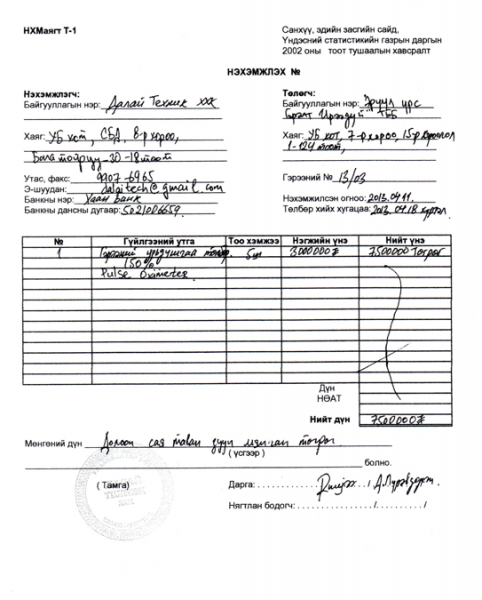 НХМаягт Т-1
Санхүү, эдийн засгийн сайд,
Үндэсний статистикийн газрын даргын
2002 оны тоот тушаалын хавсралт
НЭХЭМЖЛЭХ №
Нэхэмжлэгч:
Байгууллагын нэр: Далай Техник ХХК
Хаяг: УБ хот, СБД, 8-р хороо,
Бага тойруу-30-18 тоот
Утас, факс: 9907-6965
Э-шуудан: dalaitech@gmail.com
Банкны нэр: Хаан Банк
Банкны дансны дугаар: 5021006659
Төлөгч:
Байгууллагын нэр: Эрүүл урс
Ирээдүй ТББ
Хаяг: УБ хот, 7-р хороо, 15-р хороолол
1-124 тоот,
Гэрээний № 13/03
Нэхэмжилсэн огноо: 2013.04.11.
Төлбөр хийх хугацаа: 2013.04.18 хүртэл
№ Гүйлгээний утга Тоо хэмжээ Нэгжийн үнэ Нийт үнэ
1 Гэрээний урьдчилгаа төлбөр 5ш 3000000₮ 7500000 Төгрөг
50%
Pulse Oximeter
Дүн
НӨАТ
Нийт дүн 7500000₮
Мөнгөний дүн Долоон сая таван зуун мянган төгрөг
( үсгээр )
болно.
( Тамга)
Дарга:
Нягтлан бодогч: